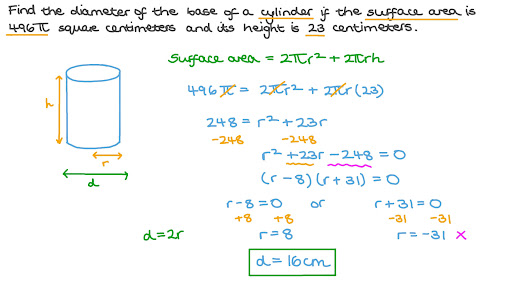 Find the diameter of the base of a cylinder if the surface area is
496π square centimeters and its height is 23 centimeters.
surface area = 2πr² + 2πrh
496π = 2πr² + 2πr(23)
248 = r² + 23r
-248 -248
r² + 23r - 248 = 0
(r - 8)(r + 31) = 0
r - 8 = 0 or r + 31 = 0
+8 +8 -31 -31
d = 2r r = 8 r = -31 x
d = 16cm
h
r
d